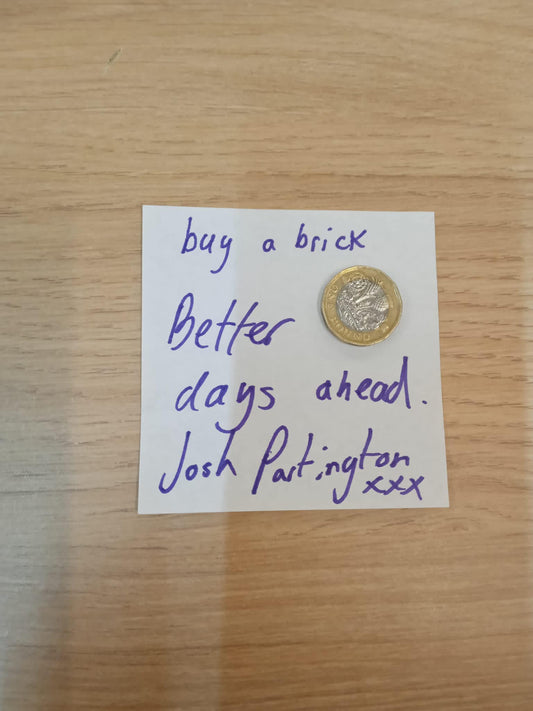 buy a brick
Better
days ahead.
Josh Partington
xxx